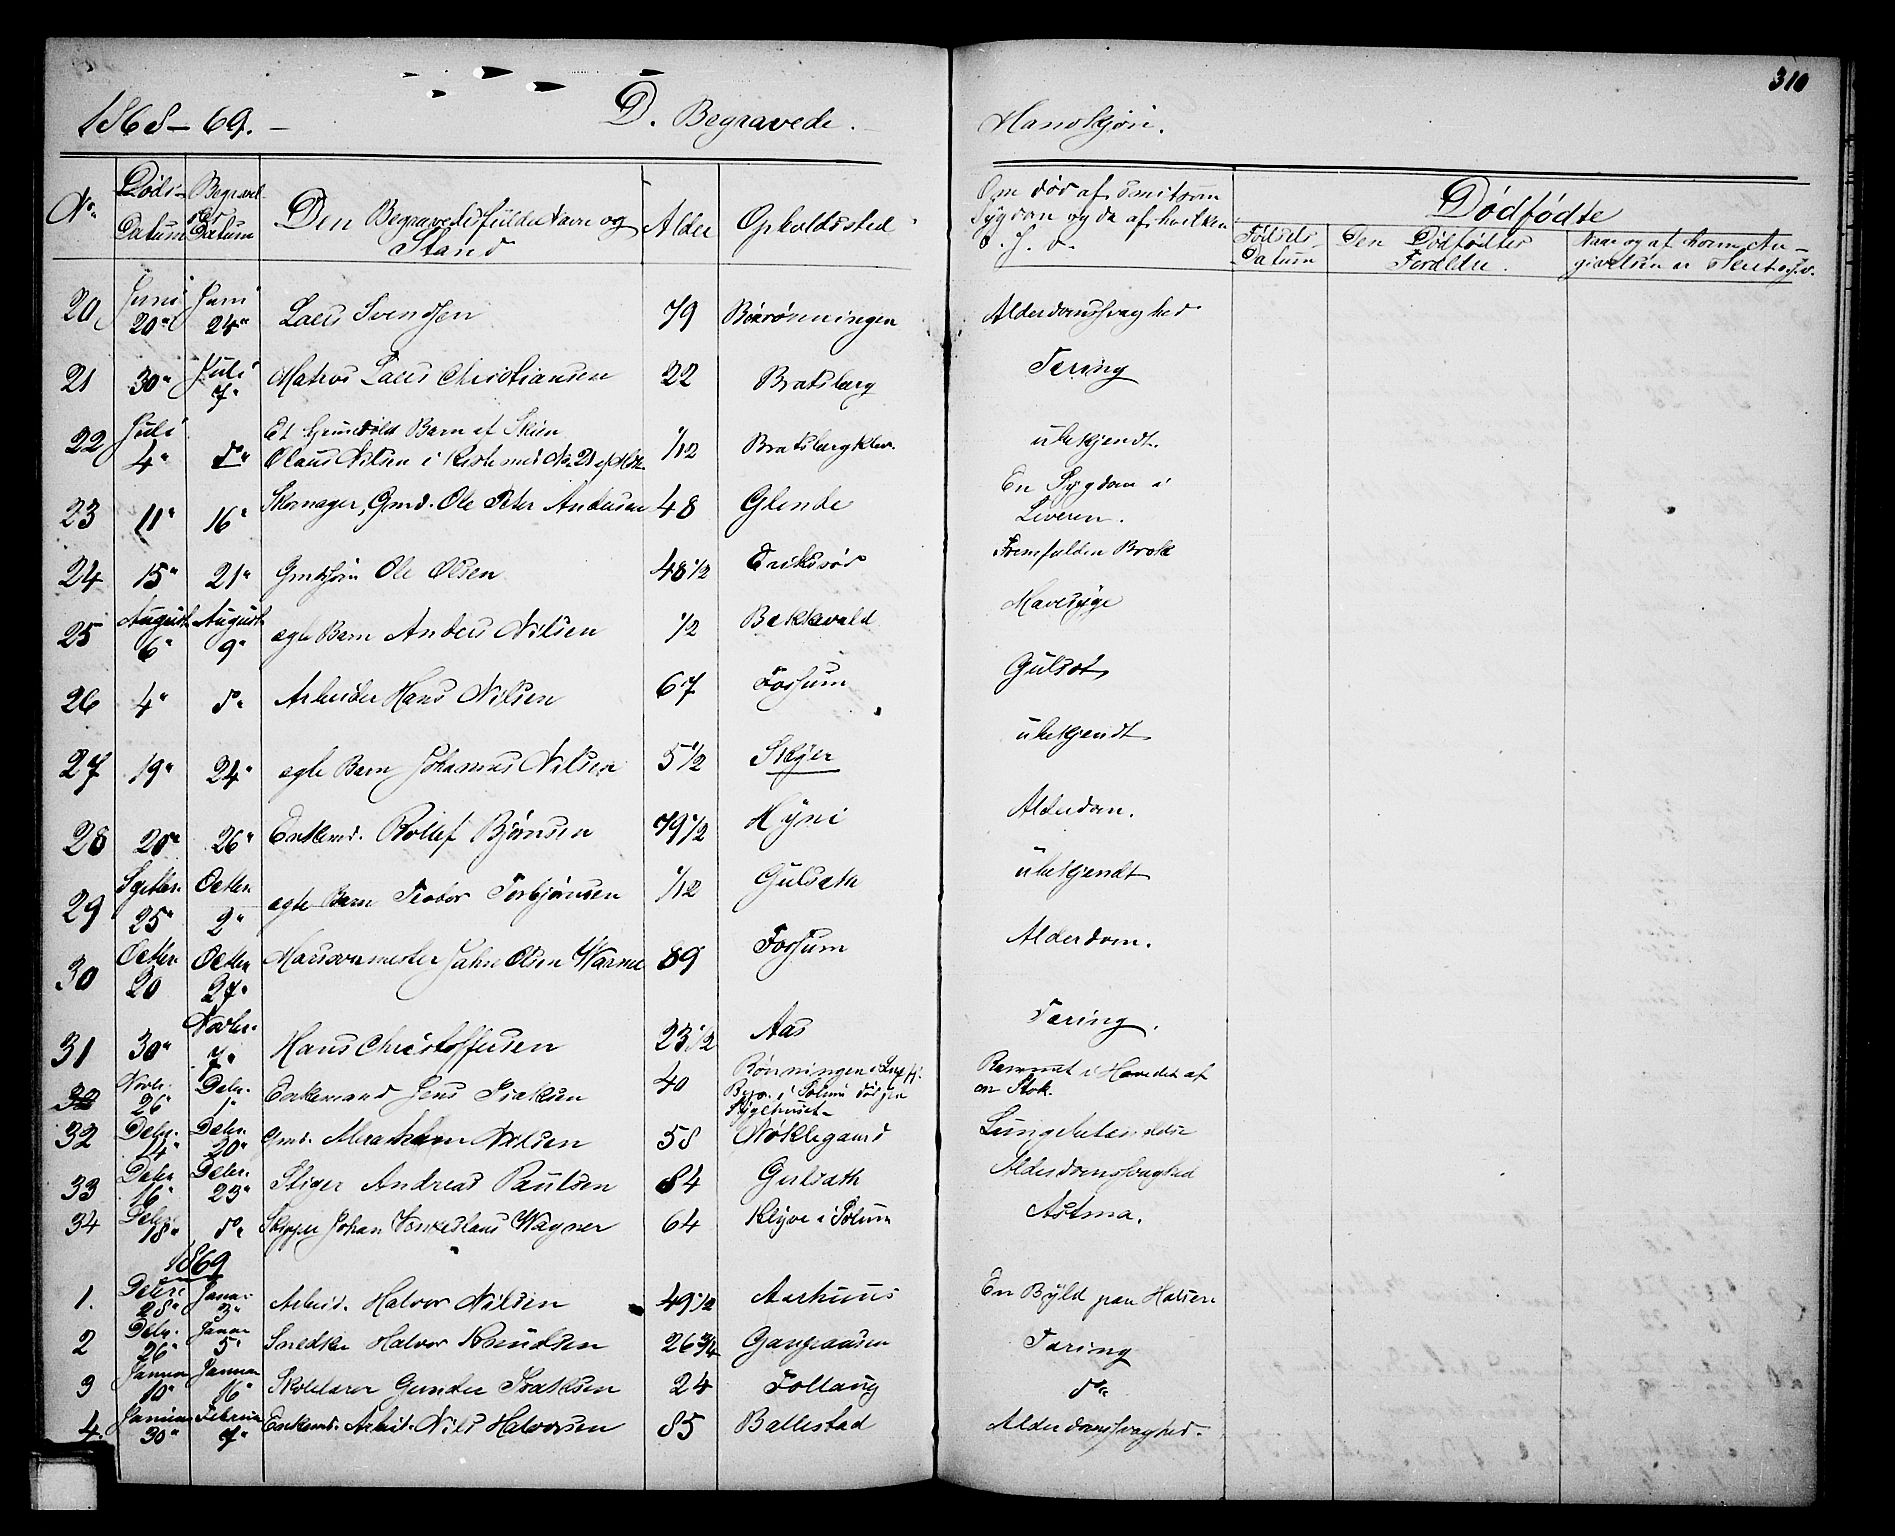 310
1868-69.- D. Begravede. Mandkjøn.
No. Døds-Datum Begravelses Datum Den Begravedes fulde Navn og Stand Alder Opholdssted Om død af smitsom Sygdom og da af hvilken Dødfødte
Fødsels-Datum Den Dødfødtes Forældre Naar og af hvem An-givelsen er
20 Juni 20" Juni 24" Lars Svendsen 79 Alderdomssvaghed
21 30" Juli 7" Matros Lars Christiansen 22 Bratsberg Tæring
22 Juli 4" do" Et Barn af Skien
Olaus Nilsen i Kiste med No. 21 1/12 Bratsbergklev. ubekjendt.
23 11" 16" Skomager, Gmd. Ole Peter Andersen 48 Glende En Sygdom i
Leveren.
24 15" 21" Ole Olsen 48 1/2 Fremfalden Brok
25 August 6" August 9" ægte Barn Anders Nilsen 1/2 Bakkevold Mavesyge
26 4" do" Arbeider Hans Nilsen 67 Fossum Gulsot
27 19" 24" ægte Barn Johannes Nilsen 5 1/2 Skyer ubekjendt
28 20" 26" Enkemd. Rollef Bjørnsen 79 1/2 Hyni Alderdom.
29 Septbr. 25" Octbr. 2" ægte Barn Torbjørnsen 1/12 Gulseth ubekjendt
30 Octbr. 20 Octbr. 27" Masovnmester John Olsen Warme 89 Fossum Alderdom.
31 30" Novbr. 7" Hans Christoffersen 23 1/2 Aas Tæring.
32 Novbr. 26" Debr. 1" Enkemand Jens Isaksen 40 Rønningen i
i Solum død paa
Sygehuset- Rammet i Hovedet af
en Stok.
32 Debr. 14" Debr. 20" Gmd. Abraham Nilsen 58 Nøklegaard Lungebetændelse
33 Debr. 16" Debr. 23" Stiger Andreas Paulsen 84 Gulseth Alderdomssvaghed
34 Debr. 18" do" Skipper Johan Wagner 64 Klyve i Solum Astma.
1869
1. Debr. 28" Januar 3" Arbeid. Halvor Nilsen 49 1/2 Aarhuus En Byld paa Halsen
2 Debr. 26" Januar 5" Snedker Halvor Knudsen 26 3/4 Tæring
3 Januar 10" Januar 16" Skolelærer Gunder Isaksen 24 Follaug do"
4. Januar 30" Februar 7" Enkemd. Arbeid. Nils Halvorsen 85 Ballestad Alderdomssvaghed.-